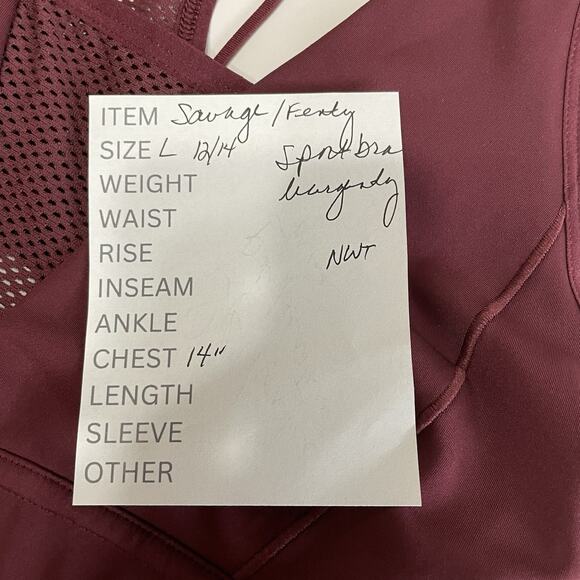 ITEM Savage/Fenty
SIZE L 12/14 Sport bra
WEIGHT burgundy
WAIST
RISE NWT
INSEAM
ANKLE
CHEST 14"
LENGTH
SLEEVE
OTHER